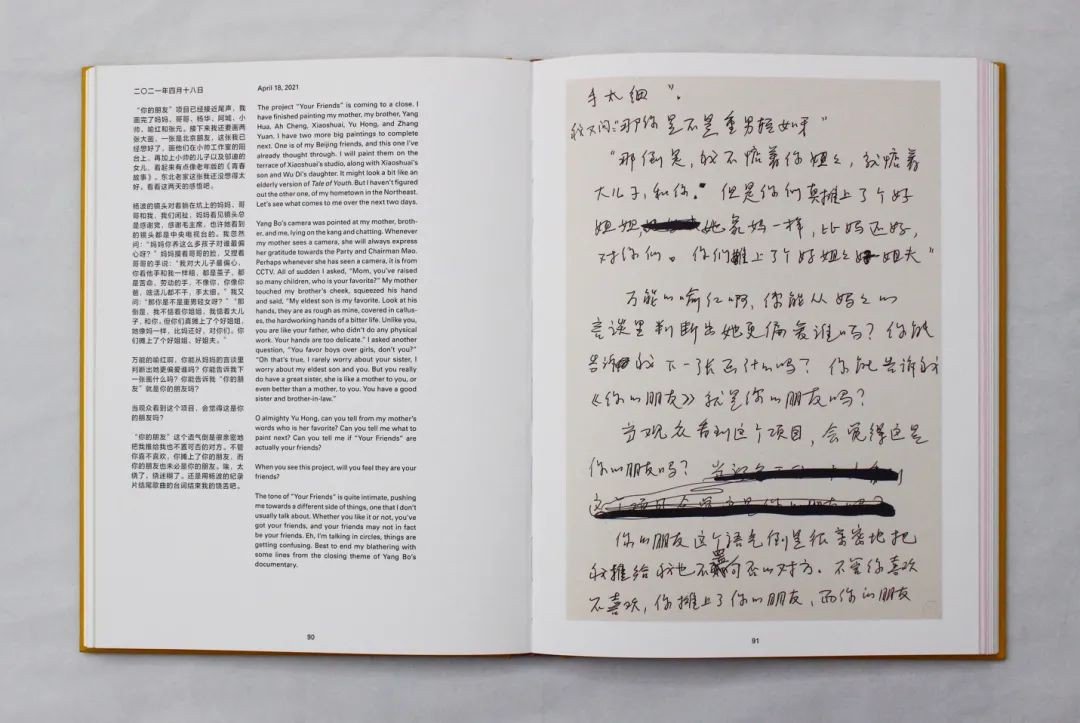 二〇二一年四月十八日
“你的朋友”项目已经接近尾声，我
画完了妈妈、哥哥、杨华、阿城、小
帅、喻红和张元。接下来我还要画两
张大画，一张是北京朋友，这张我已
经想好了，画他们在小帅工作室的阳
台上，再加上小帅的儿子以及邬迪的
女儿，看起来有点像老年版的《青春
故事》。东北老家这张我还没想得太
好，看看这两天的感悟吧。
杨波的镜头对着躺在炕上的妈妈、哥
哥和我，我们闲扯，妈妈看见镜头总
是感谢党，感谢毛主席，也许她看到
的镜头都是中央电视台的。我忽然
问：“妈妈你养这么多孩子对谁最偏
心呀？”妈妈摸着哥哥的脸，又捏着
哥哥的手说：“我对大儿子最偏心，
你看他手和我一样粗，都是茧子，都
是苦命，劳动的手，不像你，你像你
爸，啥活儿都不干，手太细。”我又
问：“那你是不是重男轻女呀？”“那
倒是，我不惦着你姐姐，我惦着大儿
子，和你，但你们真摊上了个好姐姐，
她像妈一样，比妈还好，对你们。你
们摊上了个好姐姐、好姐夫。”
万能的喻红啊，你能从妈妈的言谈里
判断出她更偏爱谁吗？你能告诉我下
一张画什么吗？你能告诉我“你的朋
友”就是你的朋友吗？
当观众看到这个项目，会觉得这是你
的朋友吗？
“你的朋友”这个语气倒是很亲密地
把我推给我也不置可否的对方。不管
你喜不喜欢，你摊上了你的朋友，而
你的朋友也未必是你的朋友。唉，太
绕了，绕迷糊了。还是用杨波的纪录
片结尾歌曲的台词结束我的饶舌吧。
April 18, 2021
The project “Your Friends” is coming to a close. I
have finished painting my mother, my brother, Yang
Hua, Ah Cheng, Xiaoshuai, Yu Hong, and Zhang
Yuan. I have two more big paintings to complete
next. One is of my Beijing friends, and this one I've
already thought through. I will paint them on the
terrace of Xiaoshuai's studio, along with Xiaoshuai's
son and Wu Di's daughter. It might look a bit like an
elderly version of Tale of Youth. But I haven't figured
out the other one, of my hometown in the Northeast.
Let's see what comes to me over the next two days.
Yang Bo's camera was pointed at my mother, broth-
er, and me, lying on the kang and chatting. Whenever
my mother sees a camera, she will always express
her gratitude towards the Party and Chairman Mao.
Perhaps whenever she has seen a camera, it is from
CCTV. All of sudden I asked, “Mom, you've raised
so many children, who is your favorite?” My mother
touched my brother's cheek, squeezed his hand
and said, “My eldest son is my favorite. Look at his
hands, they are as rough as mine, covered in callus-
es, the hardworking hands of a bitter life. Unlike you,
you are like your father, who didn't do any physical
work. Your hands are too delicate.” I asked another
question, “You favor boys over girls, don't you?”
“Oh that's true, I rarely worry about your sister, I
worry about my eldest son and you. But you really
do have a great sister, she is like a mother to you, or
even better than a mother, to you. You have a good
sister and brother-in-law.”
O almighty Yu Hong, can you tell from my mother's
words who is her favorite? Can you tell me what to
paint next? Can you tell me if “Your Friends” are
actually your friends?
When you see this project, will you feel they are your
friends?
The tone of “Your Friends” is quite intimate, pushing
me towards a different side of things, one that I don't
usually talk about. Whether you like it or not, you've
got your friends, and your friends may not in fact
be your friends. Eh, I'm talking in circles, things are
getting confusing. Best to end my blathering with
some lines from the closing theme of Yang Bo's
documentary.
90
手太细”。
我又问“那你是不是重男轻女呀”
“那倒是，我不惦着你姐姐，我惦着
大儿子，和你。但是你们真摊上了个好
姐姐，她象妈一样，比妈还好，
对你们。你们摊上了个好姐姐好姐夫”
万能的喻红啊，你能从妈妈的
言谈里判断出她更偏爱谁吗？你能
告诉我下一张画什么吗？你能告诉我
《你的朋友》就是你的朋友吗？
当观众看到这个项目，会觉得这是
你的朋友吗？
你的朋友这个语气倒是很亲密地把
我推给我也不置可否的对方。不管你喜欢
不喜欢，你摊上了你的朋友，而你的朋友
91